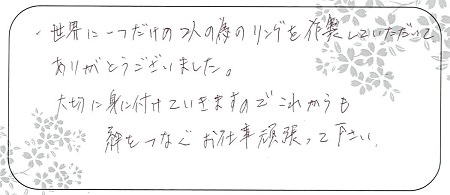 ・世界に一つだけの2人の為のリングを作製していただいて
ありがとうございました。
大切に身に付けていきますのでこれからも
絆をつなぐお仕事頑張って下さい。